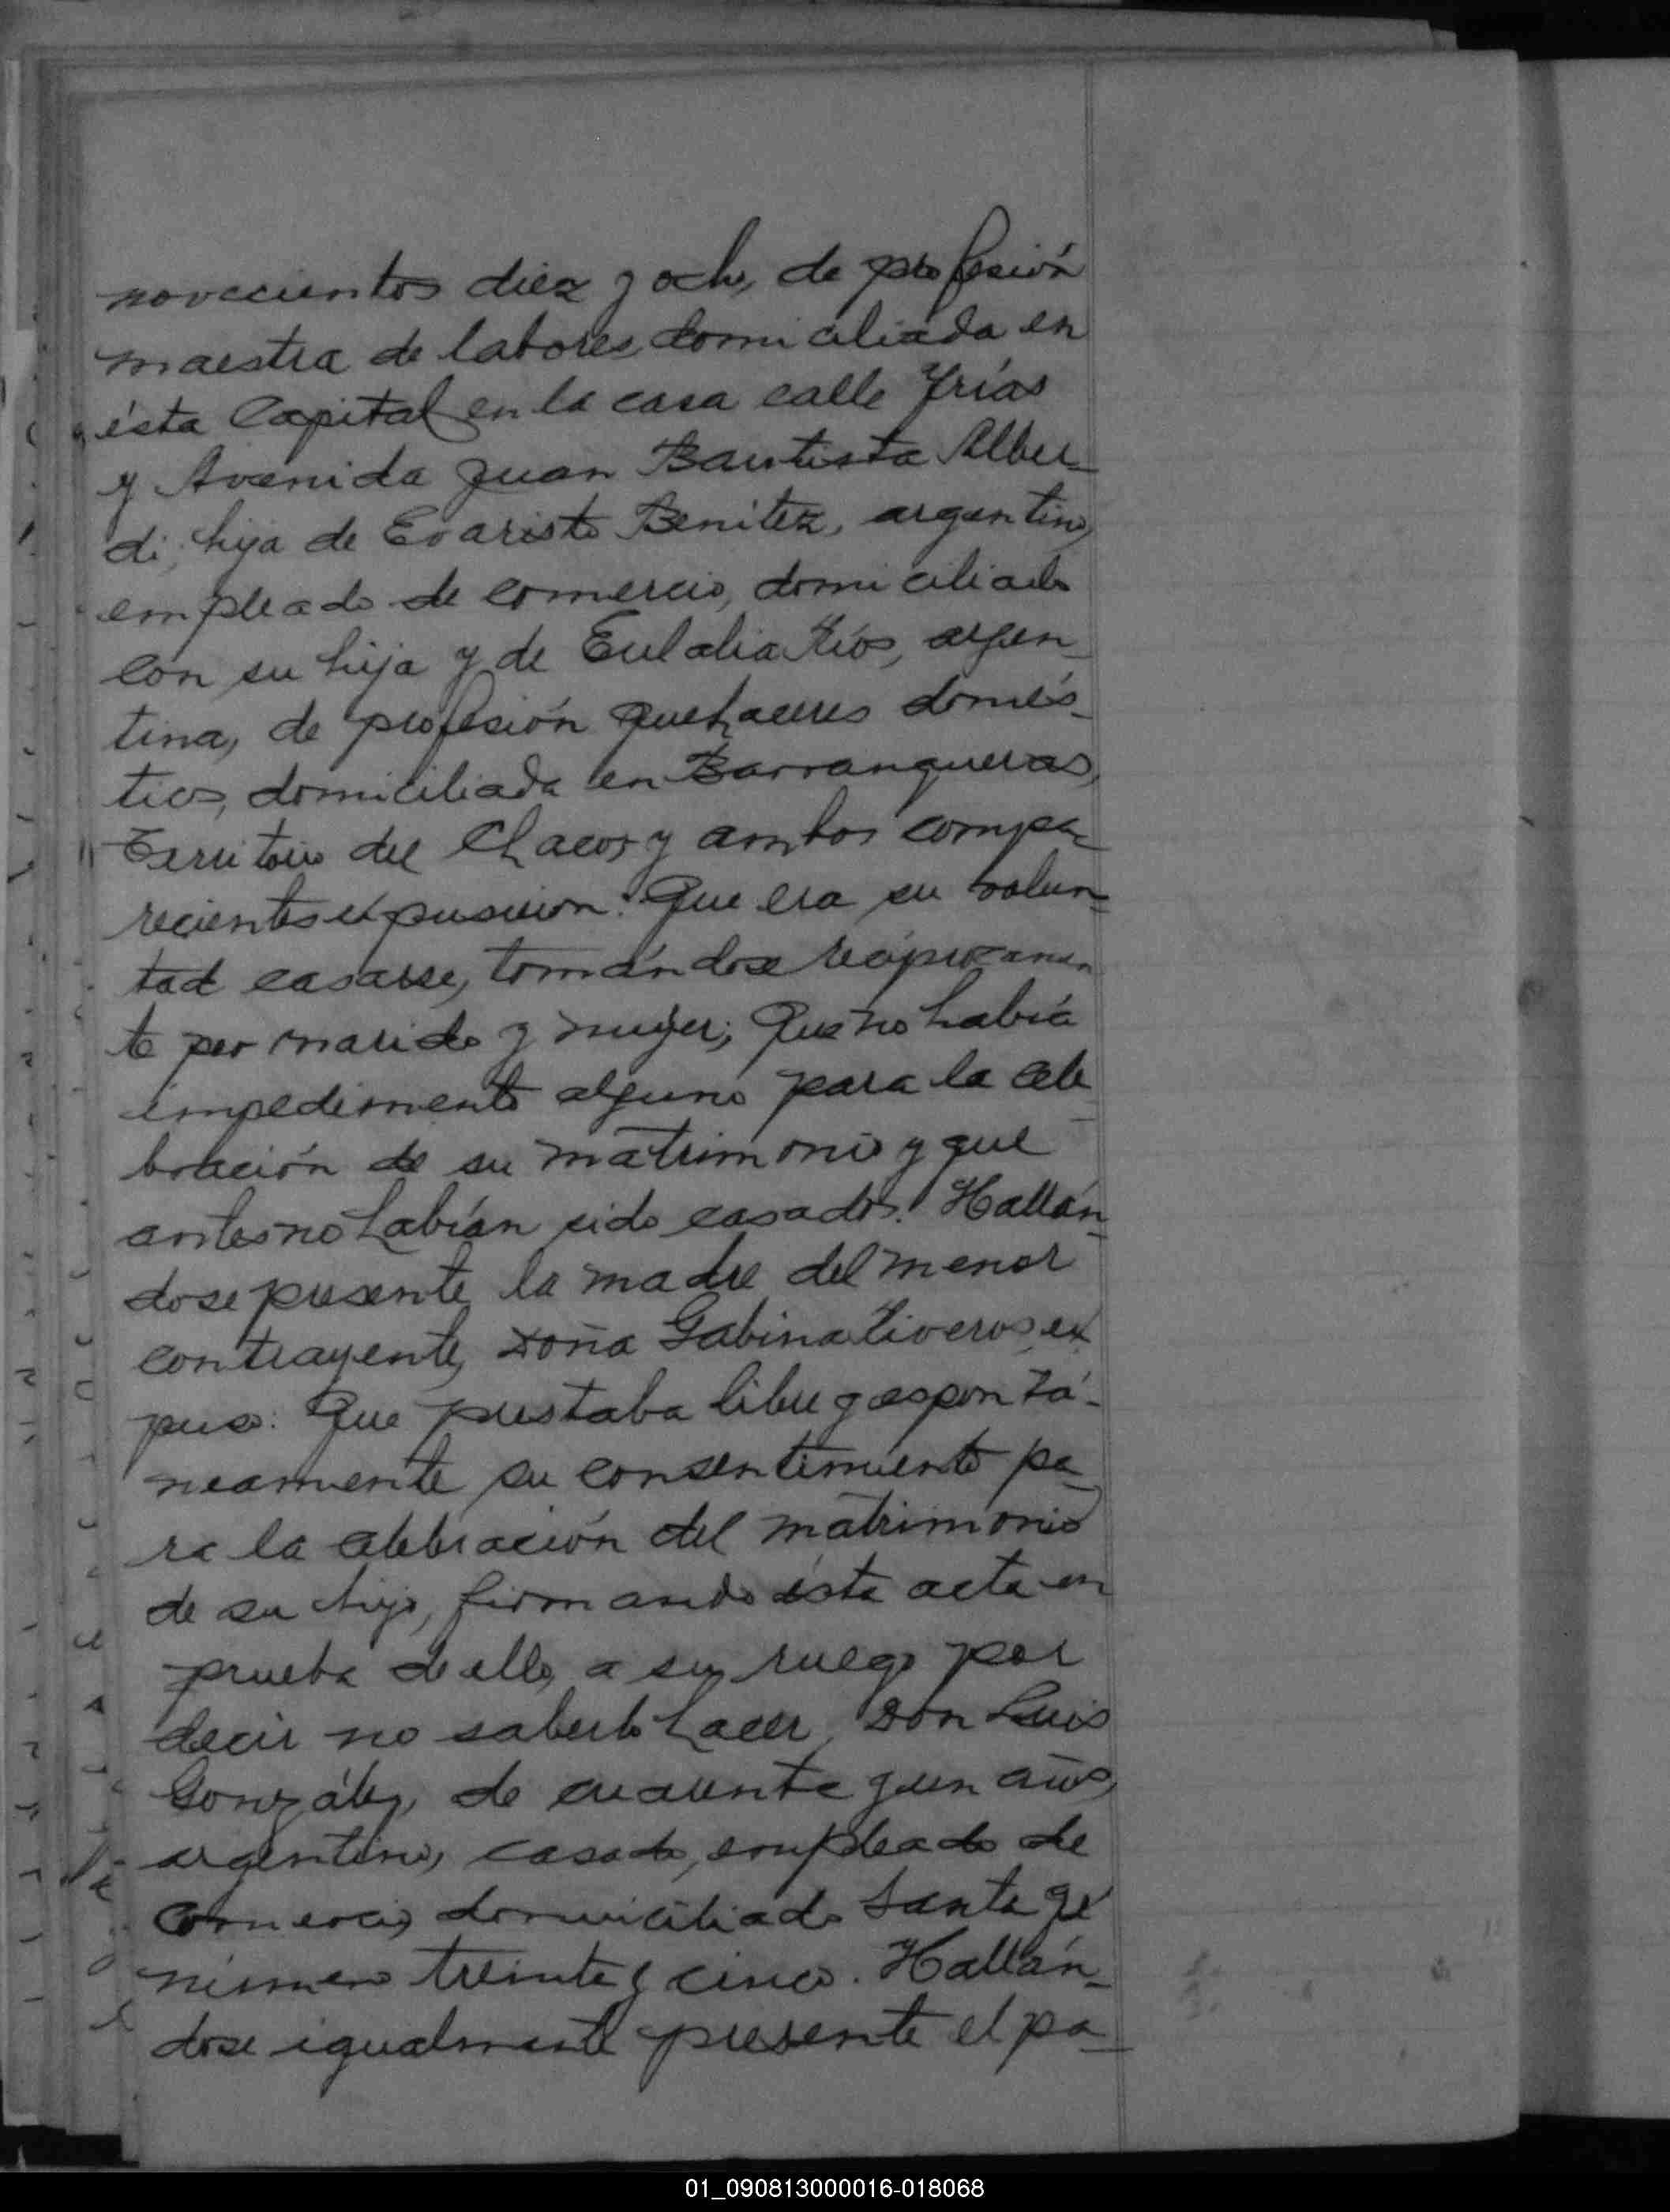 novecientos diez y ocho, de profesión
maestra de labores, domiciliada en
ésta Capital en la casa calle Frías
y Avenida Juan Bautista Alber-
di; hija de Evaristo Benitez, argentino,
empleado de comercio, domiciliado
con su hija y de Eulalia Ríos, argen-
tina, de profesión quehaceres domés-
ticos, domiciliada en Barranqueras,
Territorio del Chaco; y ambos compa-
recientes expusieron: Que era su volun-
tad casarse, tomándose recíprocamen
te por marido y mujer; Que no había
impedimento alguno para la cele
bración de su matrimonio y que
antes no habían sido casados. Hallán-
dose presente la madre del menor
contrayente, Doña Gabina Riveros, ex
puso: Que prestaba libre y espontá-
neamente su consentimiento pa-
ra la celebración del matrimonio
de su hijo, firmando ésta acta en
prueba de ello, a su ruego por
decir no saberlo hacer, Don Luis
González, de cuarenta y un años,
argentino, casado, empleado de
comercio, domiciliado Santa Fé
número treinta y cinco. Hallán-
dose igualmente presente el pa-
01_090813000016-018068